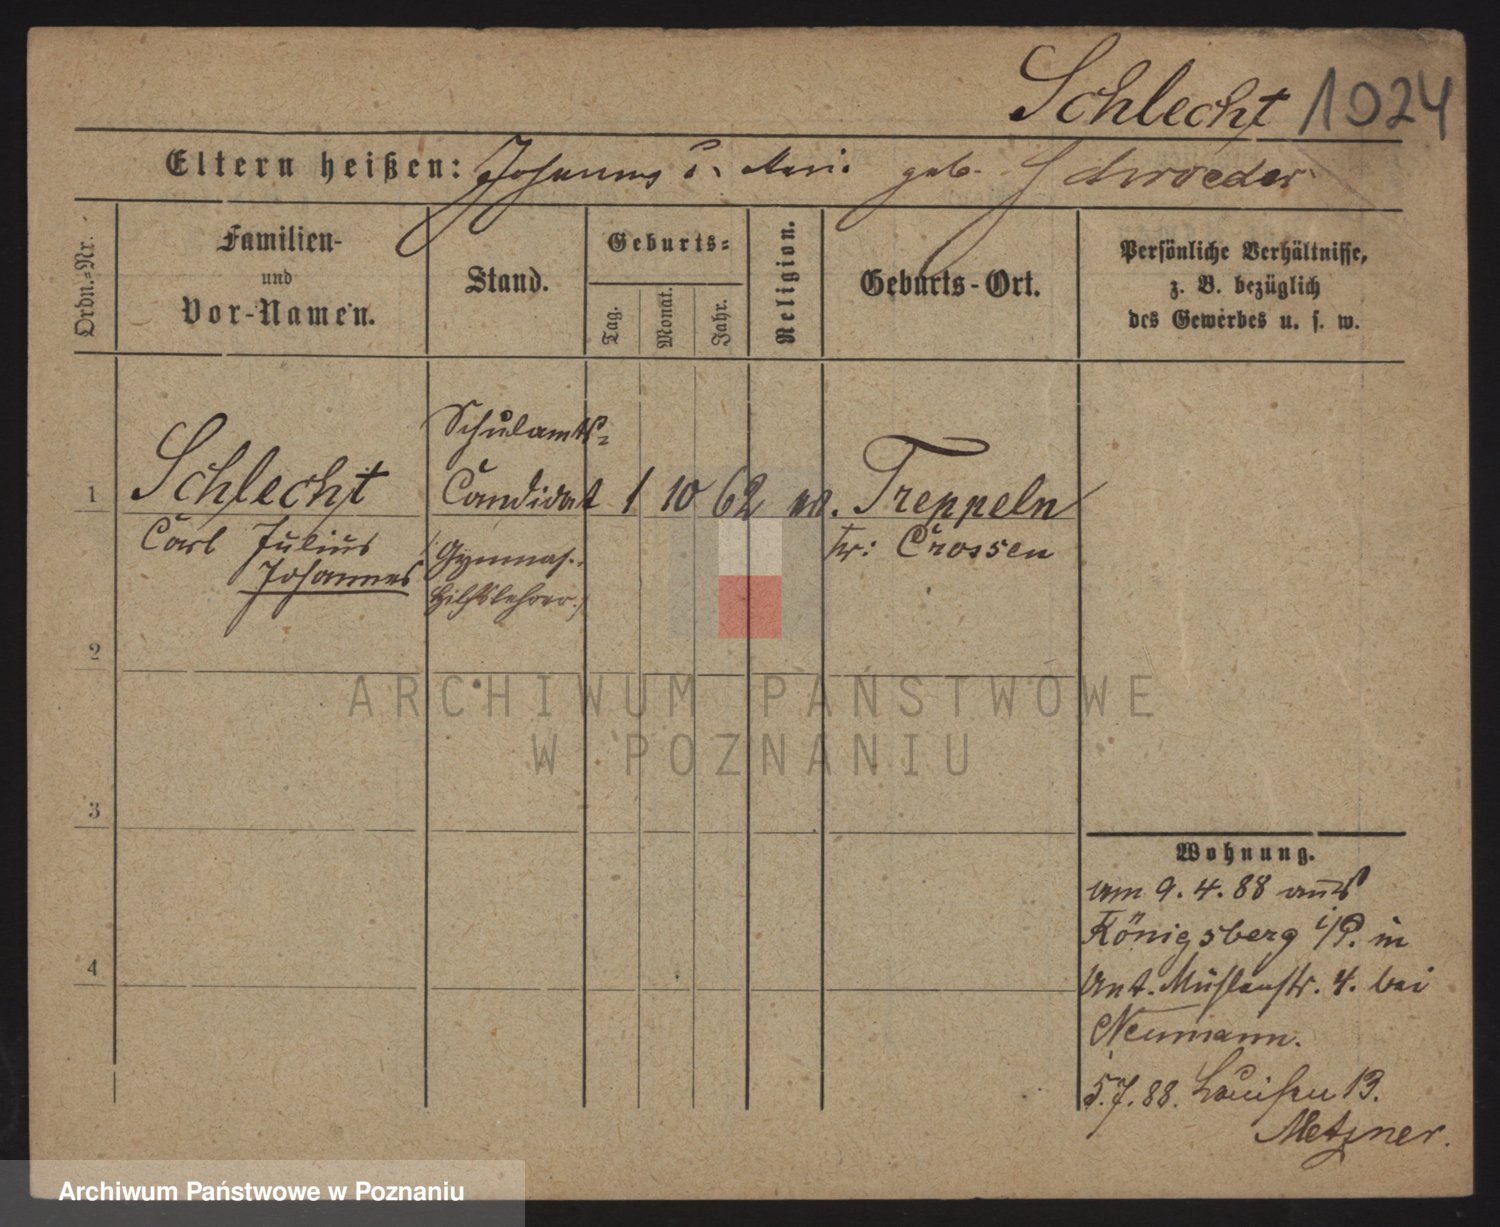 Schlecht 1924
Eltern heißen: Johannes u. Marie geb. Schroeder
Ordn.-Nr.
Familien-
und
Vor-Namen.
Stand.
Geburts-
Tag.
Monat.
Jahr.
Religion.
Geburts-Ort.
Persönliche Verhältnisse,
z. B. bezüglich
des Gewerbes u. s. w.
Schulamts-
1 Schlecht Candidat 1 10 62 Treppeln
Carl Julius Gymnas.- Kr: Crossen
Johannes Hilfslehrer)
2
3
4
Wohnung.
am 9.4.88 aus
Königsberg i/P. in
Unt. Mühlenstr. 4. bei
Neumann.
5.7.88. Louisen 13.
Metzner.
ARCHIWUM PAŃSTWOWE
W POZNANIU
Archiwum Państwowe w Poznaniu